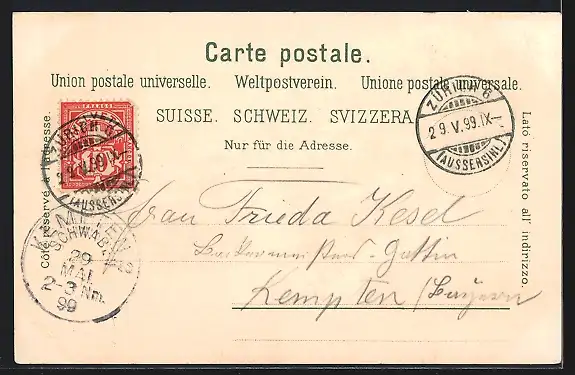 Carte postale.
Union postale universelle. Weltpostverein. Unione postale universale.
SUISSE. SCHWEIZ. SVIZZERA.
Nur für die Adresse.
Côté réservé à l'adresse.
Lato riservato all' indirizzo.
FRANCO
ZÜRICH 6
29.V.99.IX-
(AUSSERSIHL)
ZÜRICH 6
29.V.99.IX-
(AUSSERSIHL)
KEMPTEN
SCHWAB.
29
MAI
2-3 Nm.
99
Frau Frieda Kesel
Gattin
Kempten (Bayern)